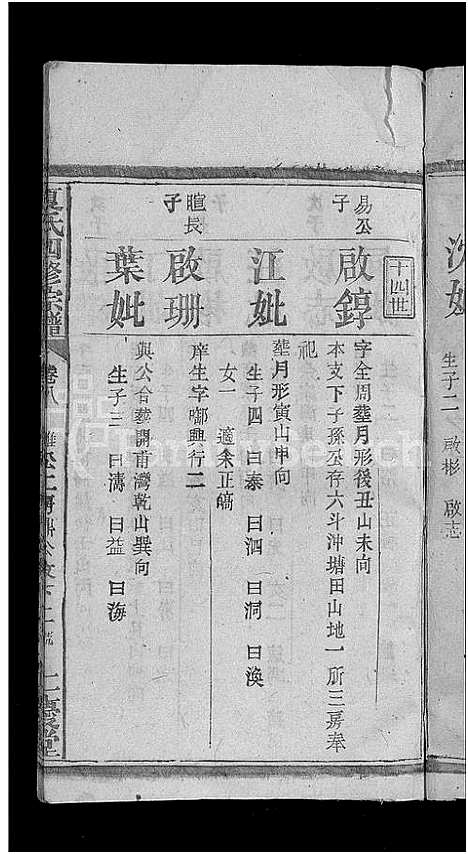 沈妣
生子二 啟彬 啟志
十四世
易公子
啟錞
字全周塟月形後丑山未向
本支下子孫丞存六斗沖塘田山地一所三房奉
祀
江妣
塟月形寅山申向
生子四 曰泰 曰泗 曰洞 曰渙
女一 適余正皜
暄長子
啟珊
庠生字啣興行二
葉妣
與公合塟開甫灣乾山巽向
生子三 曰濤 曰益 曰海
夏氏四修宗譜
卷八